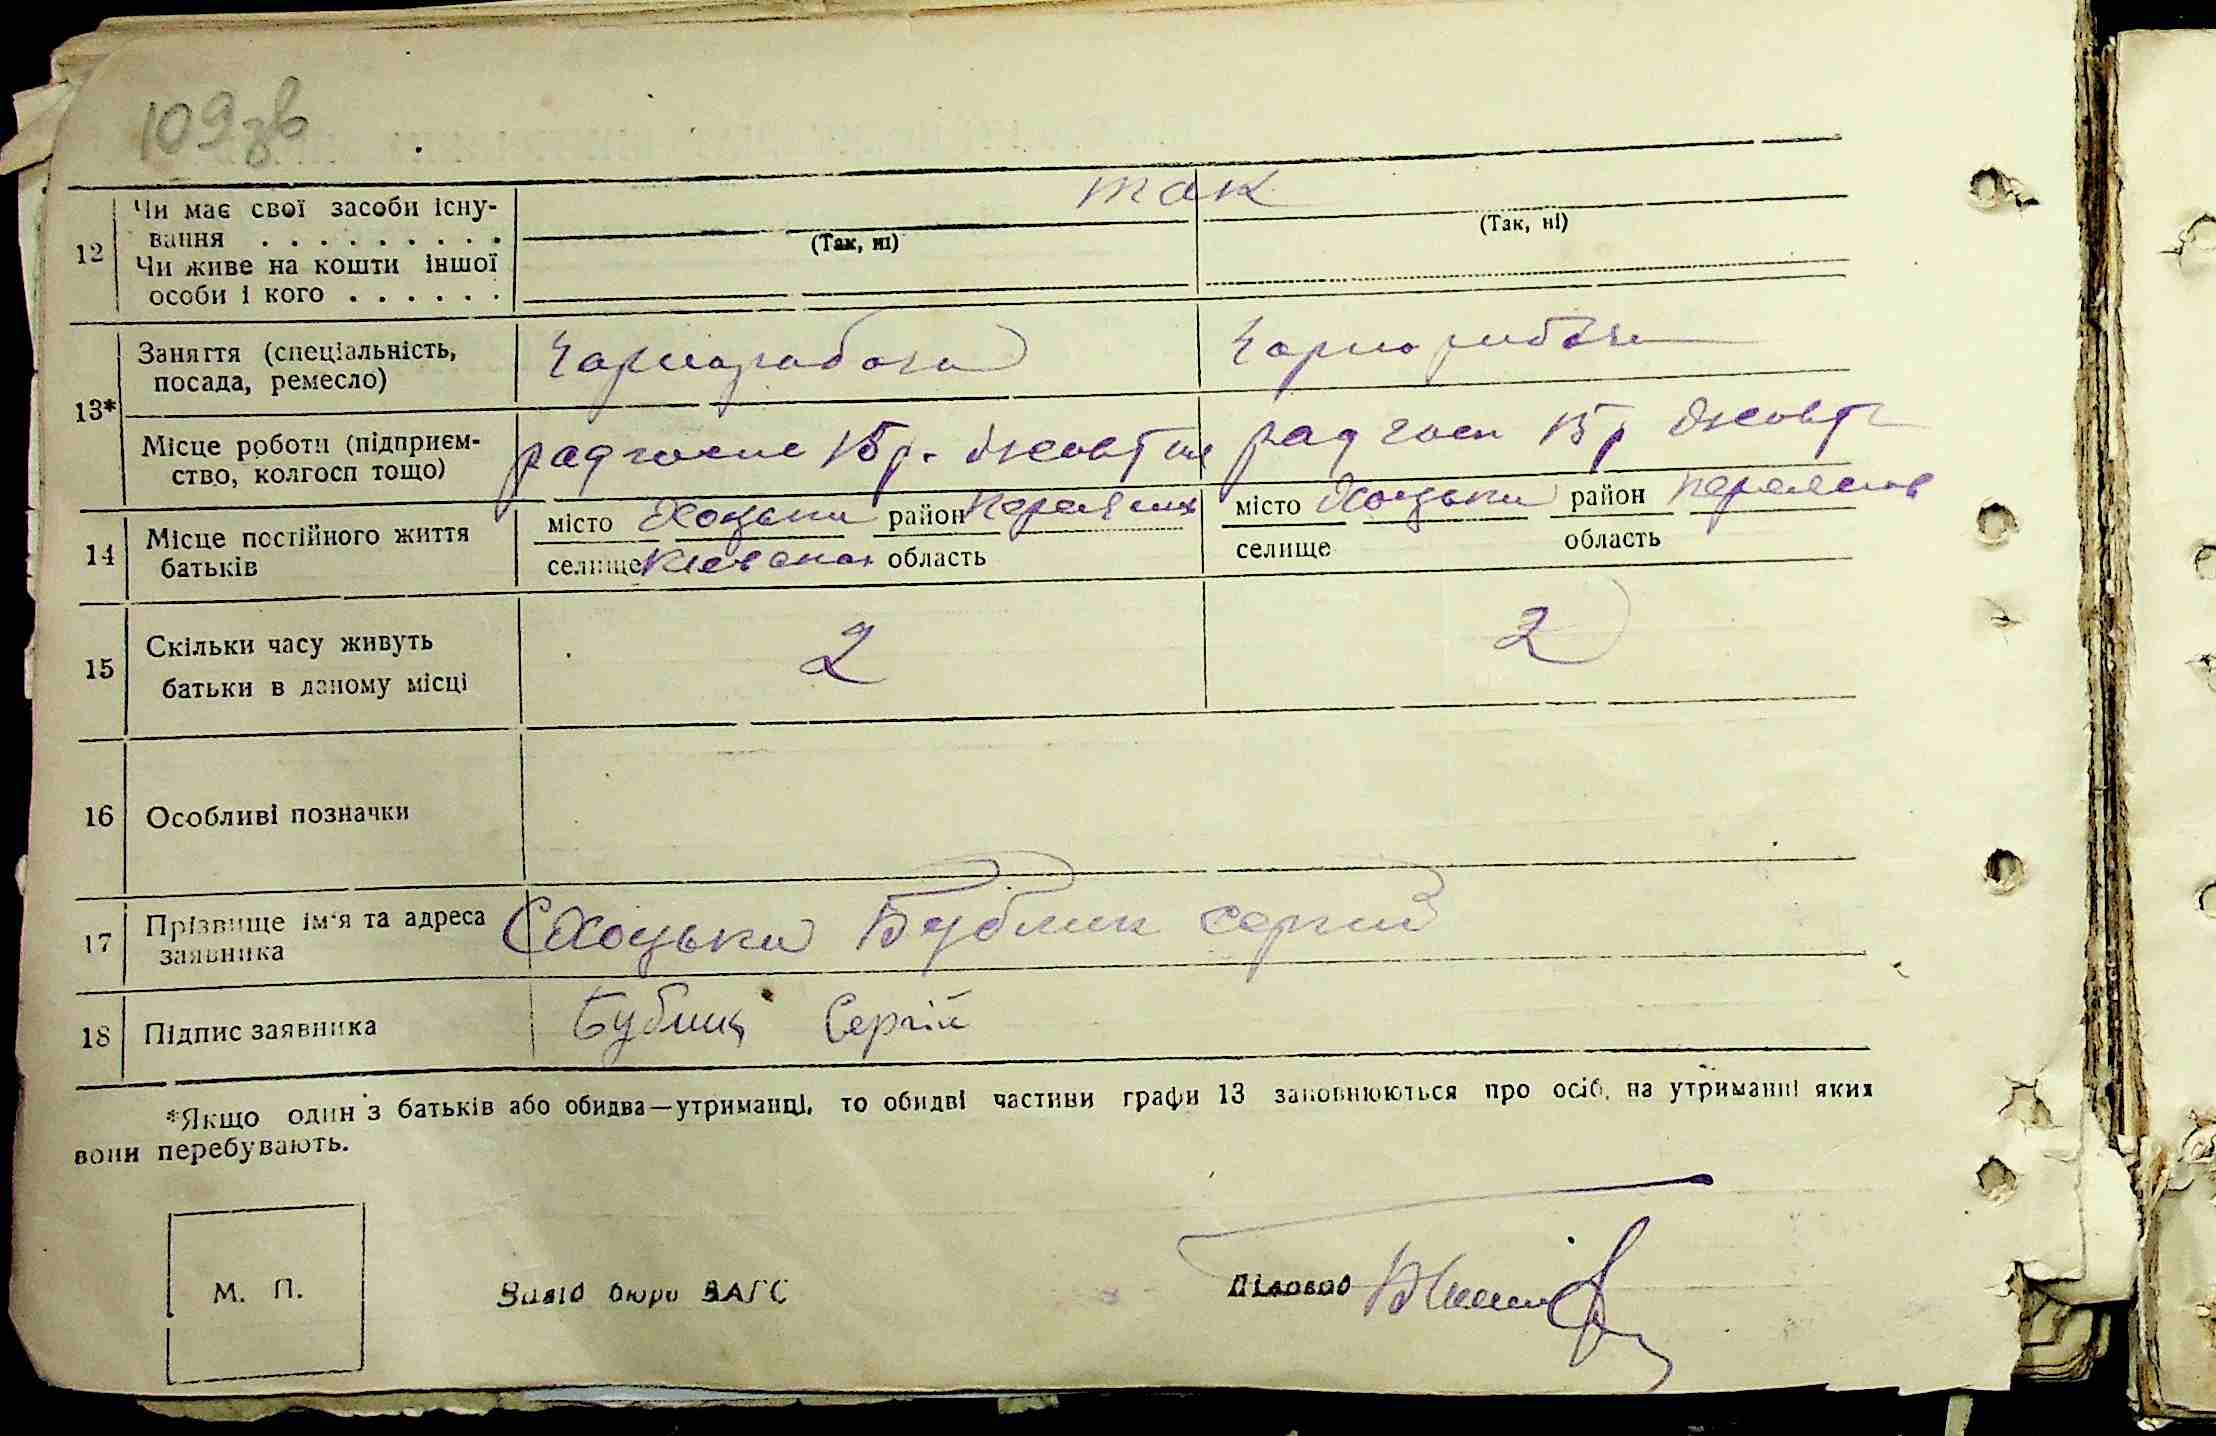 109зв
так
12 Чи має свої засоби існу-
вання . . . . . . . . .
(Так, ні) (Так, ні)
Чи живе на кошти іншої
особи і кого . . . . . .
13* Заняття (спеціальність,
посада, ремесло) Чорнорабоча Чорнорабоч
Місце роботи (підприєм-
ство, колгосп тощо) радгосп 15 р. Жовтня радгосп 15 р Жовт
14 Місце постійного життя
батьків
місто Хоцьки район Переяслав місто Хоцьки район Переяслав
селище Київська область селище область
15 Скільки часу живуть
батьки в даному місці 2 2
16 Особливі позначки
17 Прізвище ім'я та адреса
заявника С Хоцьки Бублик Сергій
18 Підпис заявника Бублик Сергій
*Якщо один з батьків або обидва—утриманці, то обидві частини графи 13 заповнюються про осіб, на утриманні яких
вони перебувають.
М. П. Завід бюро ЗАГС Діловод